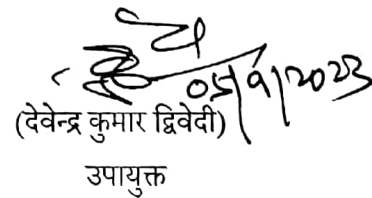 05/9/2023
(देवेन्द्र कुमार द्विवेदी)
उपायुक्त